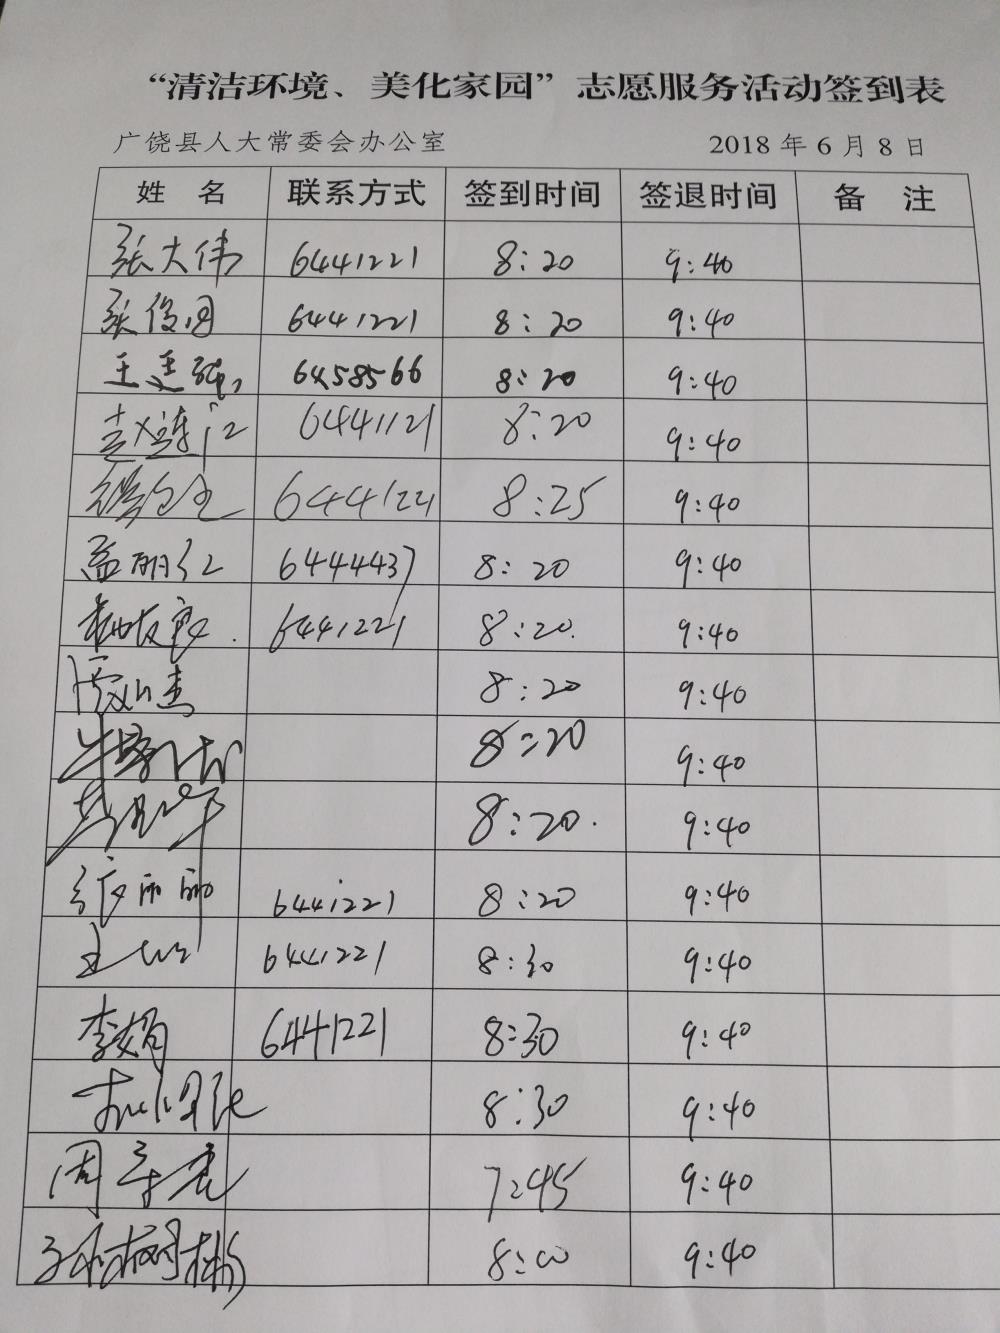 “清洁环境、美化家园”志愿服务活动签到表
广饶县人大常委会办公室 2018年6月8日
姓 名 联系方式 签到时间 签退时间 备 注
张大伟 6441221 8:20 9:40
张俊 6441221 8:20 9:40
王 6458566 8:20 9:40
6441121 8:20 9:40
6441221 8:25 9:40
孟丽红 6444437 8:20 9:40
6441221 8:20 9:40
8:20 9:40
8:20 9:40
8:20 9:40
丽丽 6441221 8:20 9:40
6441221 8:30 9:40
李娟 6441221 8:30 9:40
8:30 9:40
周 7:45 9:40
孙树彬 8:00 9:40